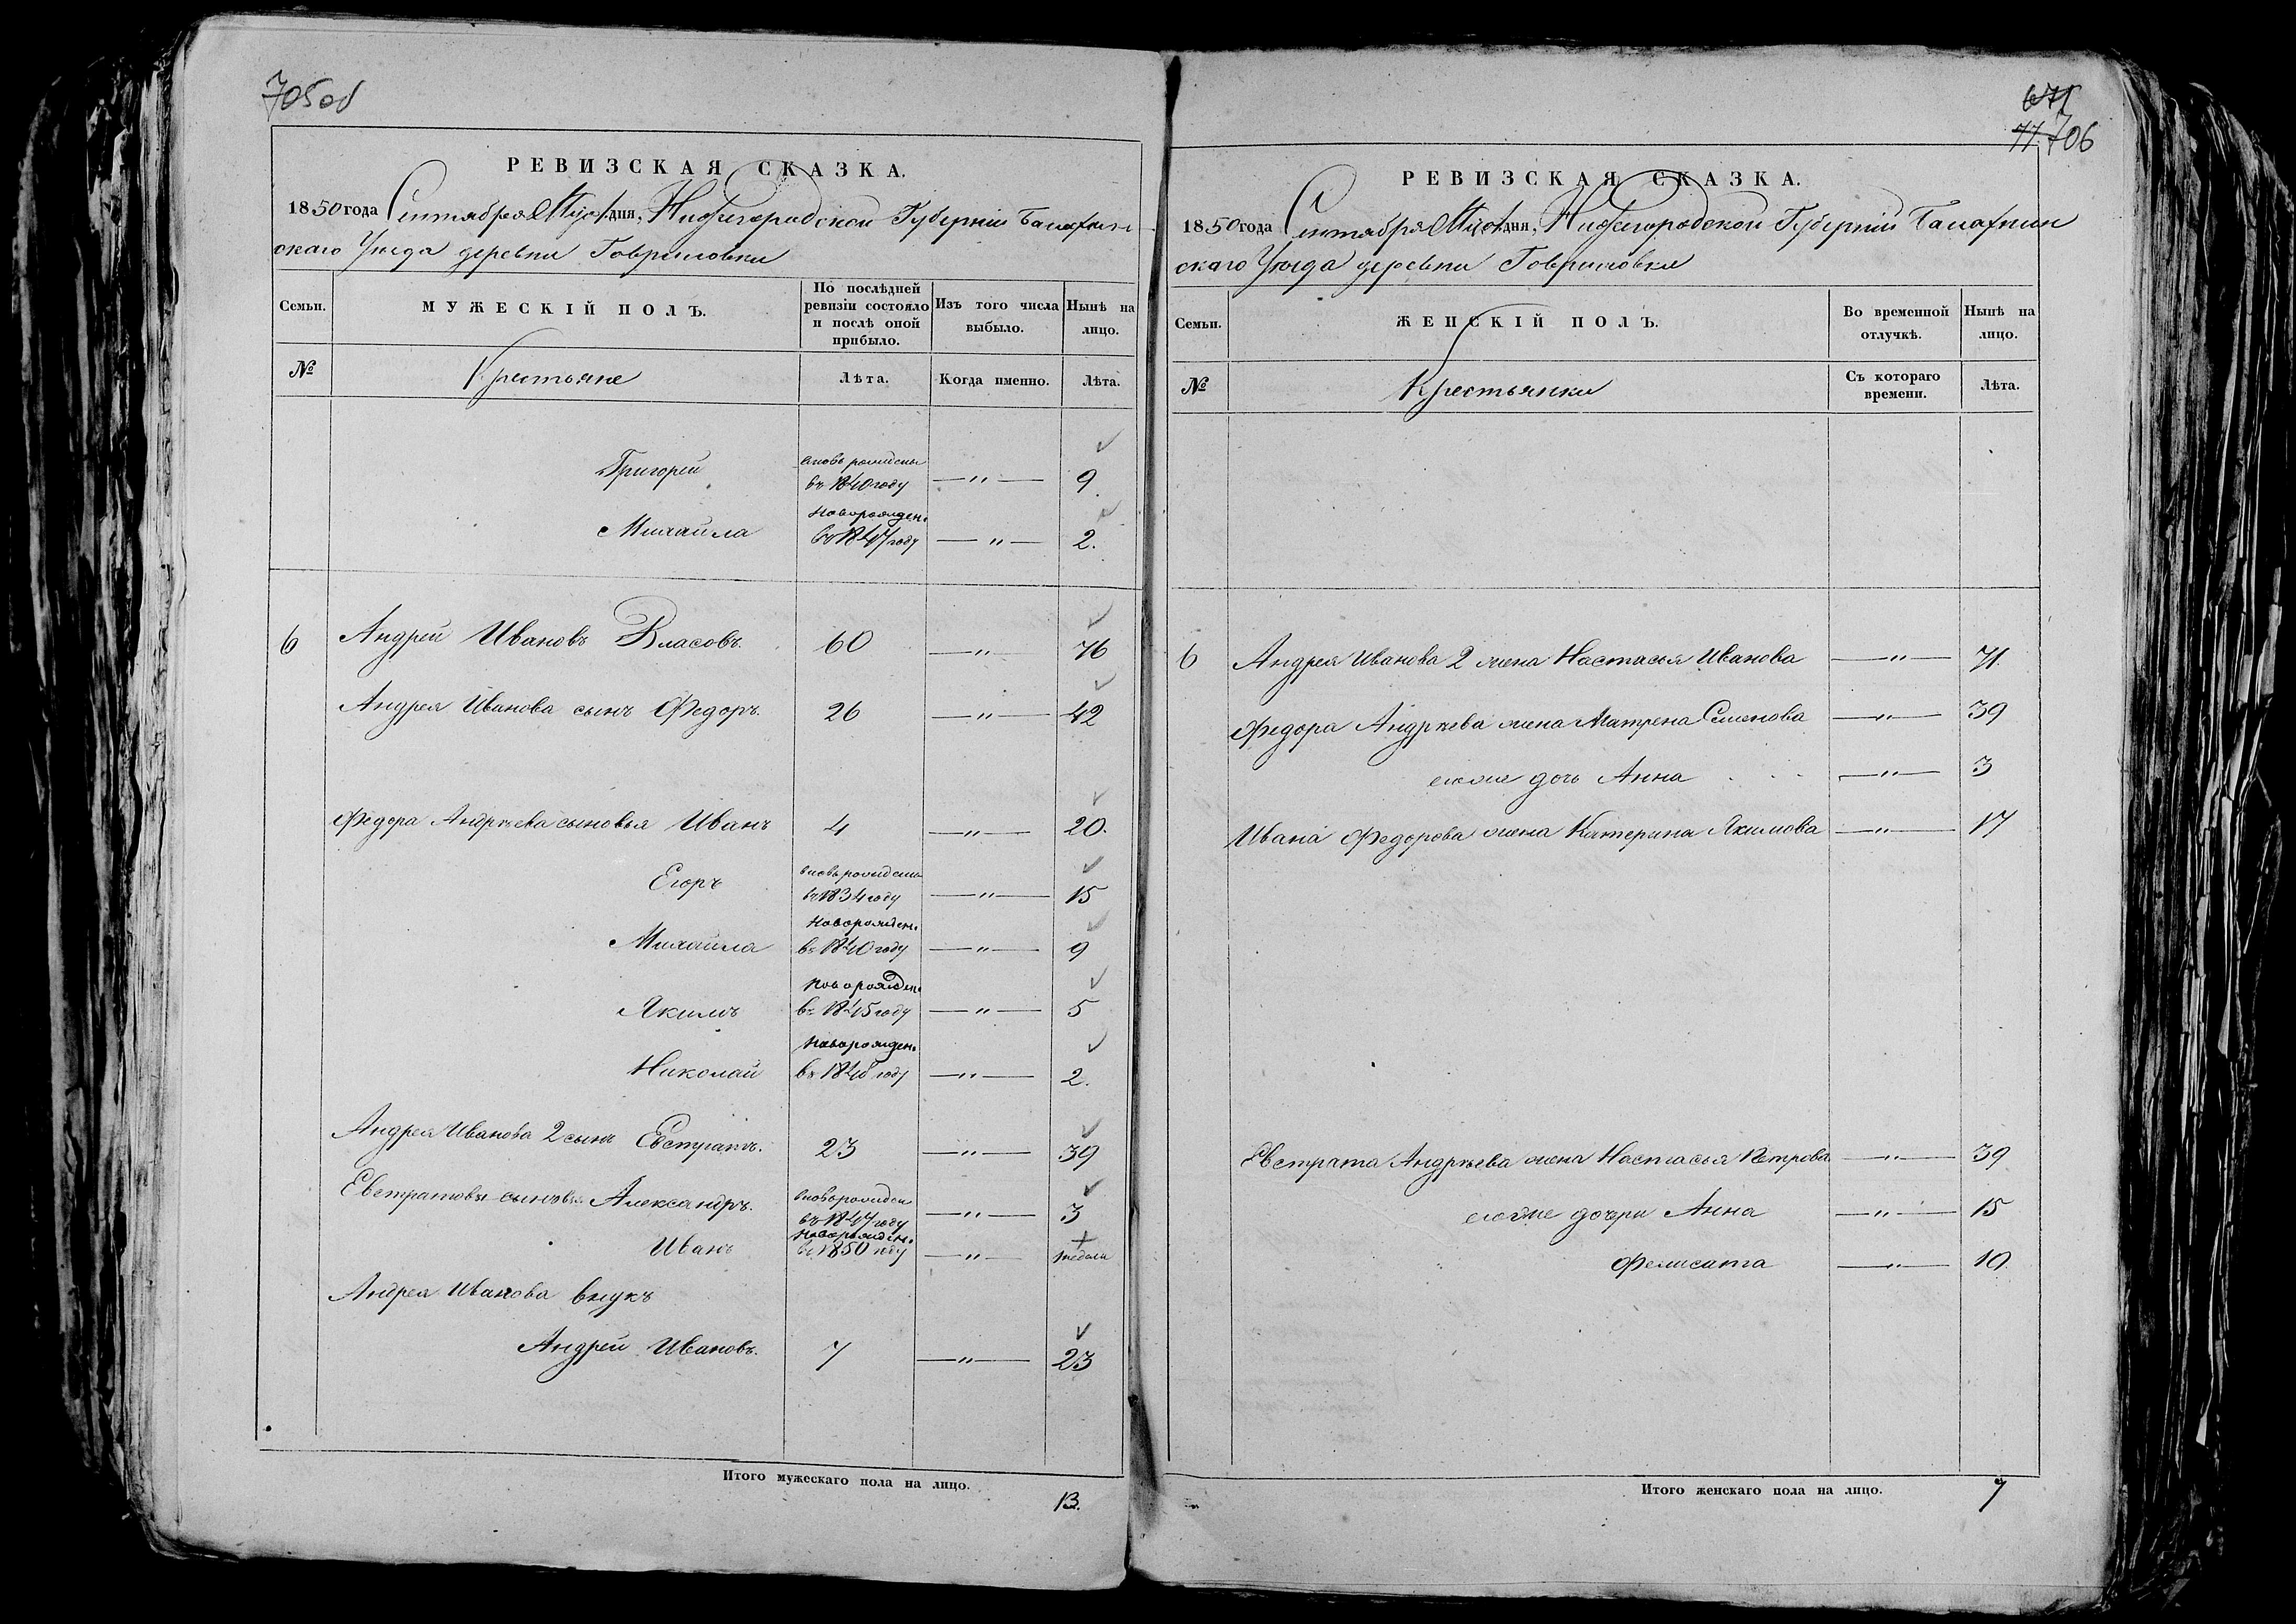 705об
РЕВИЗСКАЯ СКАЗКА.
1850 года Сентября дня, Нижегородской Губерніи Балахнин
скаго Уѣзда деревни Гавриловки
Семьи.
МУЖЕСКІЙ ПОЛЪ.
По послѣдней ревизіи состояло и послѣ оной прибыло.
Изъ того числа выбыло.
Нынѣ на лицо.
№ Крестьяне Лѣта. Когда именно. Лѣта.
Григорей вновь рожденъ въ 1840 году —"— 9
Михайла новорожден. въ 1847 году —"— 2.
6 Андрей Ивановъ Власовъ. 60 —"— 76
Андрея Иванова сынъ Федоръ. 26 —"— 42
Федора Андрѣева сыновья Иванъ 4 —"— 20.
Егоръ вновь рожденъ въ 1834 году —"— 15
Михайла новорожден. въ 1840 году —"— 9
Якимъ новорожден. въ 1845 году —"— 5
Николай новорожден. въ 1848 году —"— 2.
Андрея Иванова 2 сынъ Евстратъ. 23 —"— 39
Евстратовы сыновья Александръ. вновь рожден въ 1847 году —"— 3
Иванъ новорожден. въ 1850 году —"— недели
Андрея Иванова внукъ
Андрей Ивановъ. 7 —"— 23
Итого мужескаго пола на лицо.
13.
671
77 706
РЕВИЗСКАЯ СКАЗКА.
1850 года Сентября дня, Нижегородской Губерніи Балахнин
скаго Уѣзда деревни Гавриловки
Семьи.
ЖЕНСКІЙ ПОЛЪ.
Во временной отлучкѣ.
Нынѣ на лицо.
№ Крестьянки Съ котораго времени. Лѣта.
6 Андрея Иванова 2 жена Настасья Иванова —"— 71
Федора Андрѣева жена Матрена Семенова —"— 39
егоже дочь Анна —"— 3
Ивана Федорова жена Катерина Якимова —"— 17
Евстрата Андрѣева жена Настасья Петрова —"— 39
егоже дочери Анна —"— 15
Фелисата —"— 10
Итого женскаго пола на лицо.
7